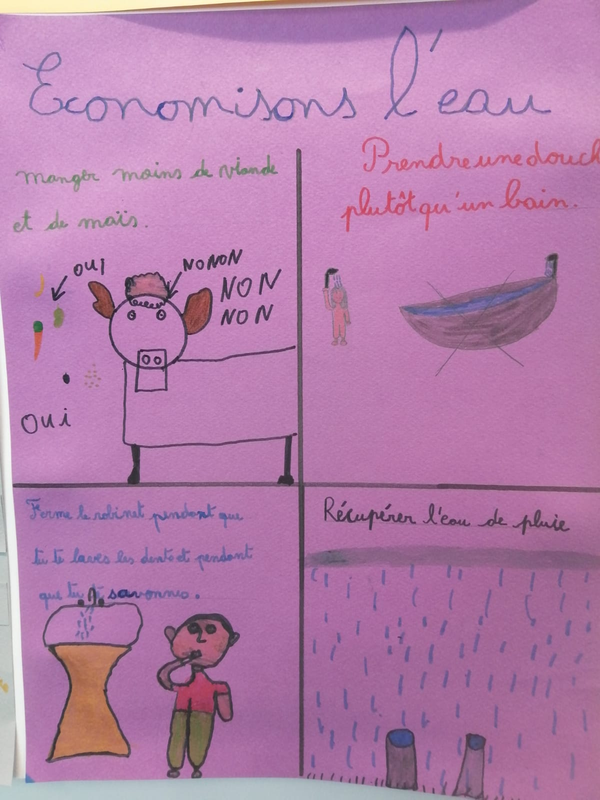 Economisons l'eau
manger moins de viande
et de maïs.
OUI
NONON
NON
NON
Oui
Prendre une douch
plutôt qu'un bain.
Ferme le robinet pendant que
tu te laves les dents et pendant
que tu te savonnes.
Récupérer l'eau de pluie